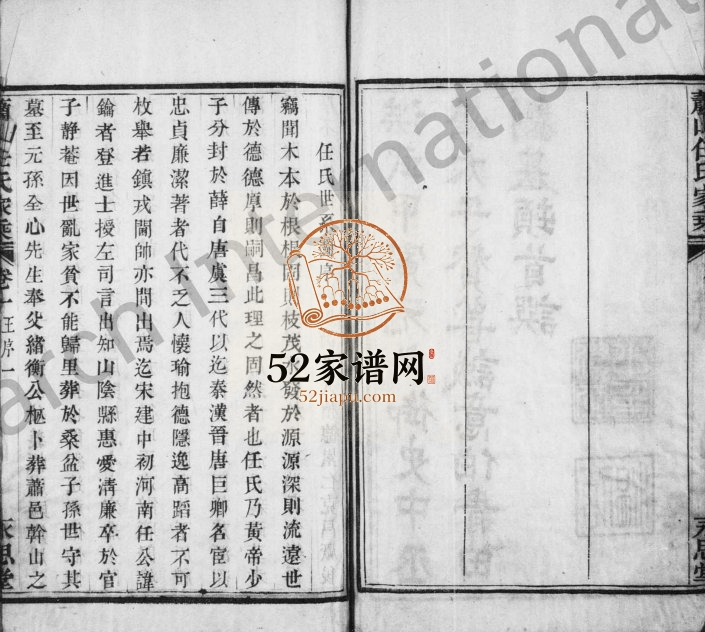 蕭山任氏家乘
永思堂
任氏世系
竊聞木本於根根固則枝茂水發於源源深則流遠世
傳於德德厚則嗣昌此理之固然者也任氏乃黃帝少
子分封於薛自唐虞三代以迄秦漢晉唐巨卿名宦以
忠貞廉潔著者代不乏人懷瑜抱德隱逸高蹈者不可
枚舉若鎮戎閫帥亦間出焉迄宋建中初河南任公諱
鑰者登進士授左司言出知山陰縣惠愛清廉卒於官
子靜菴因世亂家貧不能歸里葬於桑盆子孫世守其
墓至元孫全心先生奉父緒衡公柩卜葬蕭邑幹山之
蕭山任氏家乘
卷一
汪序一
永思堂
52家谱网
52jiapu.com
arch International